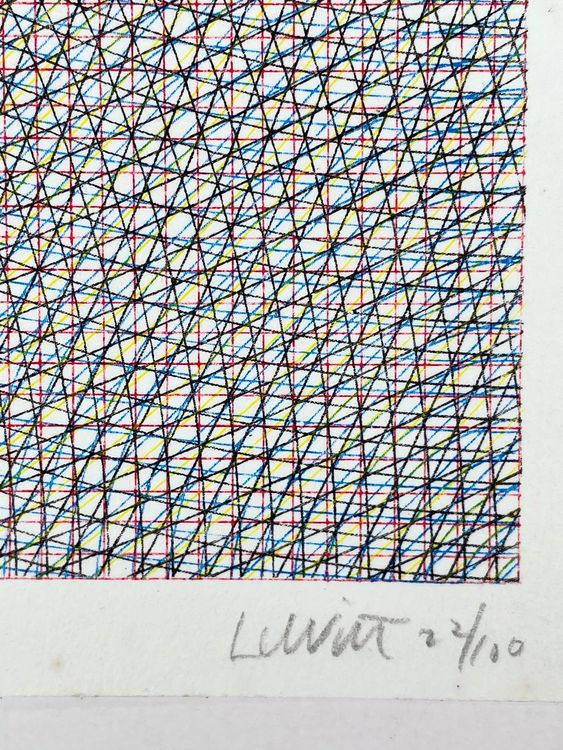 LeWitt 22/100